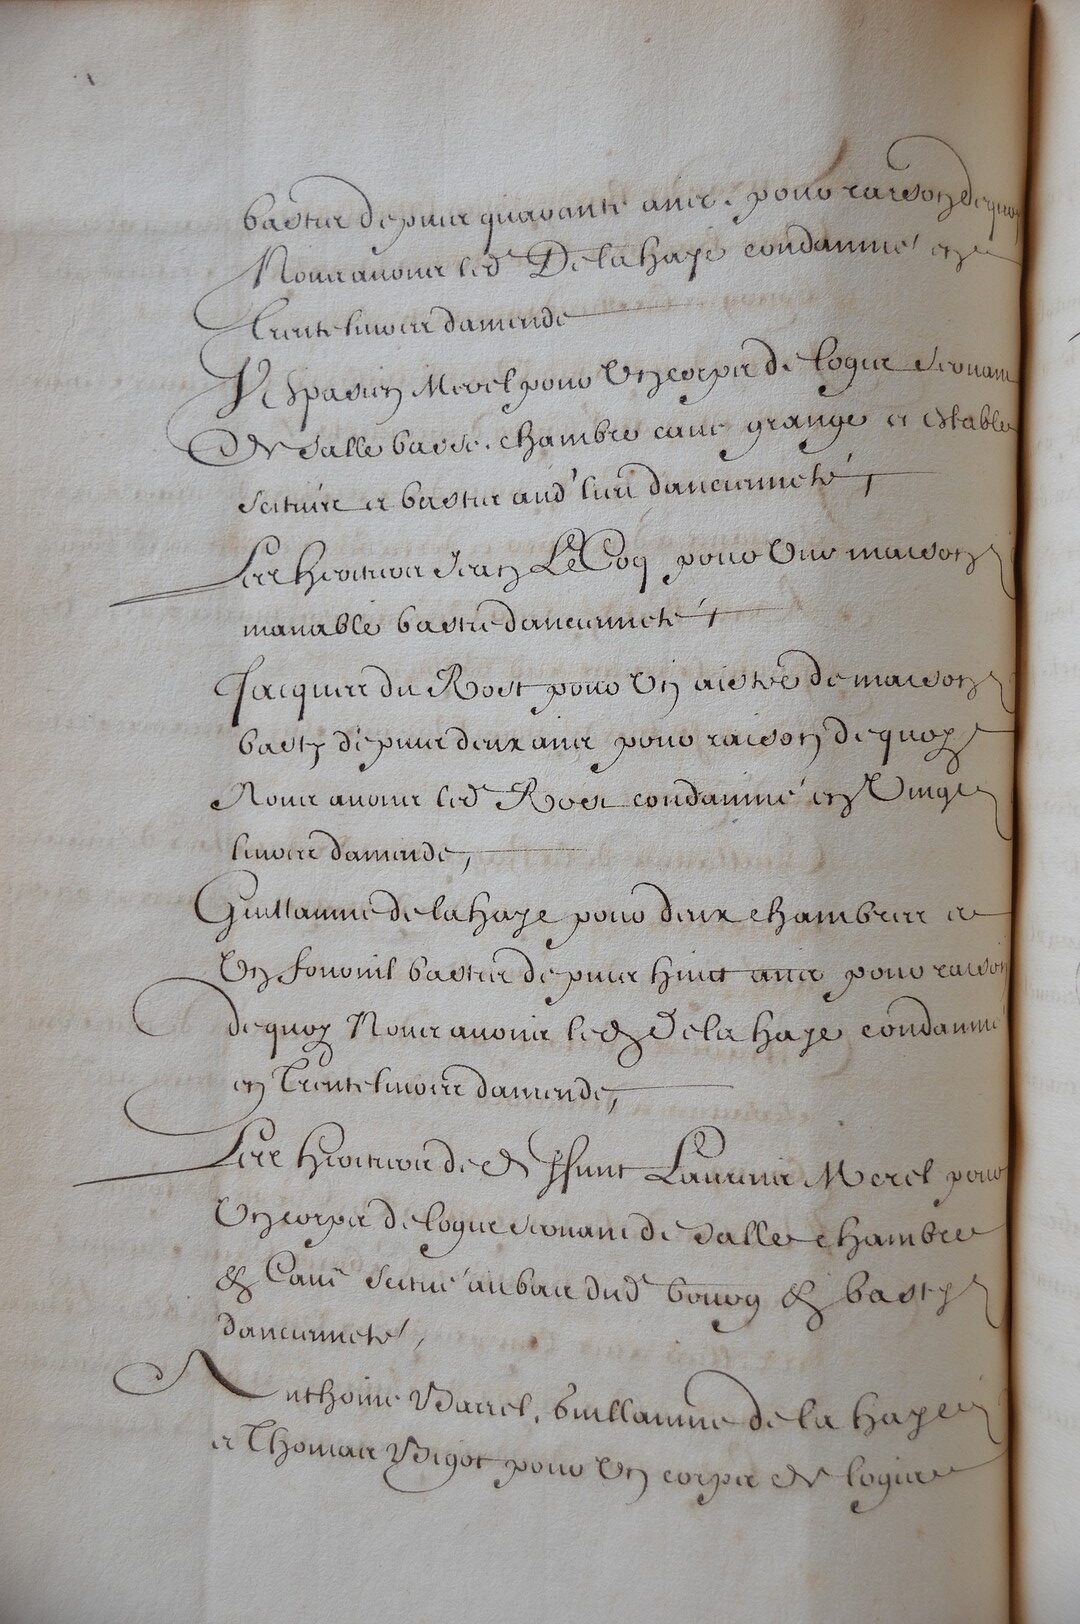 basties depuis quarante ans. pour raison de quoy
Nous avons led De la haye condamné en
Trente livres damende
Vespasien Merel pour Un corps de logis servant
de salle basse. chambre cave grange et estable
scituée et basties aud lieu dancienneté,
Les heritiers Jean Le Coq pour Une maison
manable bastie dancienneté,
Jacques du Rost pour Un aistre de maison
basty depuis deux ans pour raison de quoy
Nous avons led Rost condamné en Vingt
livres damende,
Guillaume de la haye pour deux chambres et
Un fournil basties depuis huict ans pour raison
de quoy Nous avons led De la haye condamné
en Trente livres damende,
Les heritiers de deffunt Laurens Merel pour
Un corps de logis servant de salle chambre
& Cave scitué au bas dud bourg & basty
dancienneté,
Anthoine Barrel, Guillaume de la haye
et Thomas Bigot pour Un corps de logis